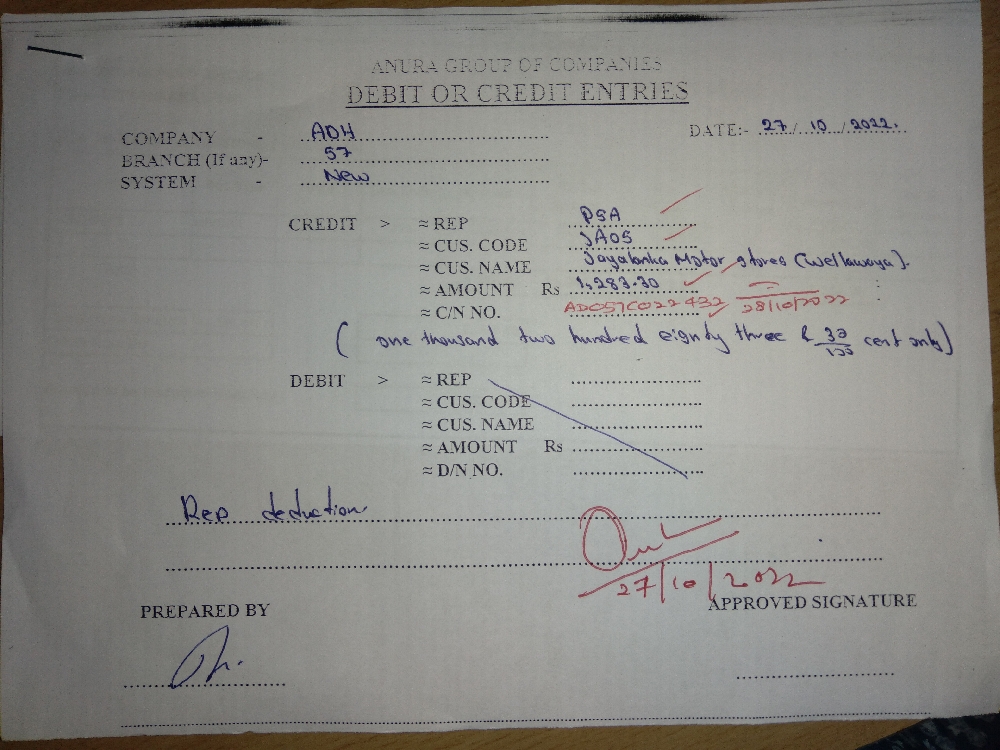 ANURA GROUP OF COMPANIES
DEBIT OR CREDIT ENTRIES
COMPANY - ADH DATE:- 27 / 10 / 2022.
BRANCH (If any)- 57
SYSTEM - New
CREDIT > ≈ REP PSA
≈ CUS. CODE JA05
≈ CUS. NAME Jayalanka Motor stores (Wellawaya).
≈ AMOUNT Rs 1,283.30
≈ C/N NO. AD057C022432 28/10/2022
( one thousand two hundred eighty three & 30/100 cent only)
DEBIT > ≈ REP
≈ CUS. CODE
≈ CUS. NAME
≈ AMOUNT Rs
≈ D/N NO.
Rep deduction
27/10/2022
PREPARED BY APPROVED SIGNATURE